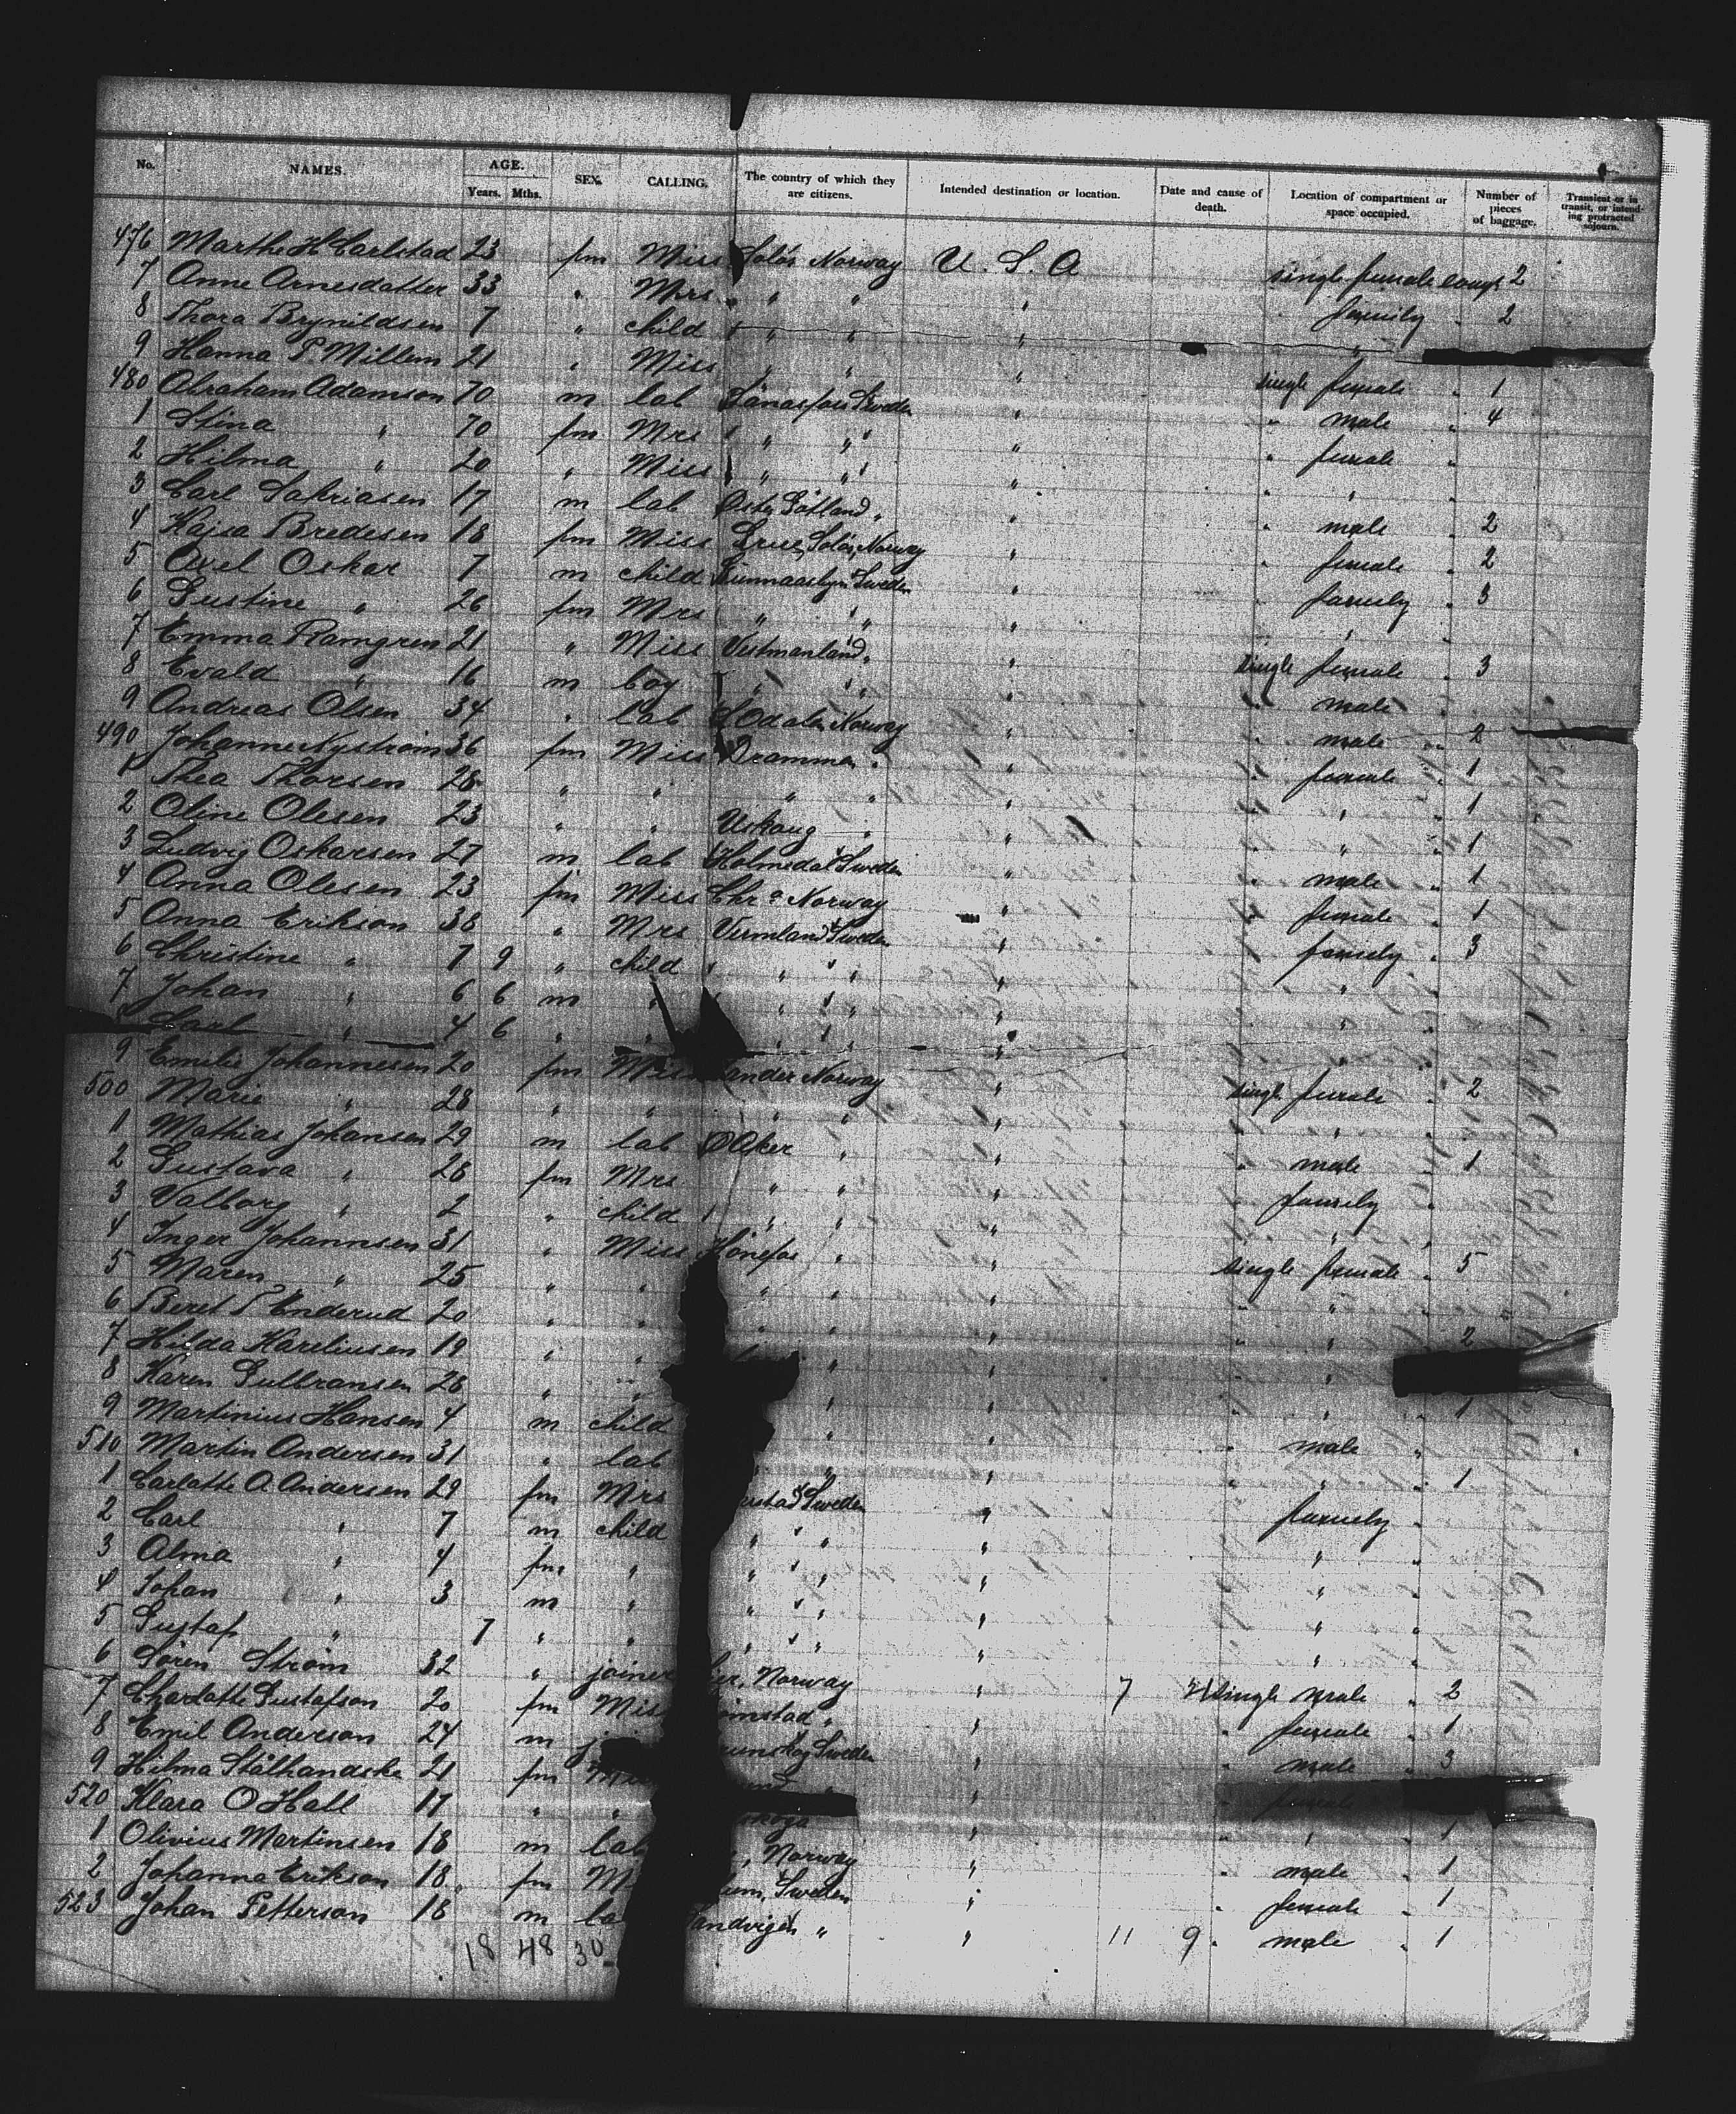 No. NAMES. AGE. Years. Mths. SEX. CALLING. The country of which they are citizens. Intended destination or location. Date and cause of death. Location of compartment or space occupied. Number of pieces of baggage. Transient or in transit, or intending protracted sojourn.
476 Marthe H Carlstad 23 fm Miss Solör Norway U. S. A single female 2
7 Anne Arnesdatter 33 " Mrs " " " family " 2
8 Thora Brynildsen 7 " child " " " "
9 Hanna P. Millem 21 " Miss " " " single female " 1
480 Abraham Adamson 70 m lab Sweden " " male " 4
1 Stina " 70 fm Mrs " " " " female "
2 Hilma " 20 " Miss " " " " " "
3 Carl 17 m lab Oster Götland " " " male " 2
4 Kajsa Bredesen 18 fm Miss Grue, Solör, Norway " " female " 2
5 Axel Oskar 7 m child Sweden " " family " 3
6 Gustine " 26 fm Mrs " " " " "
7 Emma Ramgren 21 " Miss Vestmanland " " single female " 3
8 Evald " 16 m boy " " " " male "
9 Andreas Olsen 34 " lab S Odalen Norway " " male " 2
490 Johanne Nyström 36 fm Miss Drammen " " " female " 1
1 Thea Thorsen 28 " " " " " " " " 1
2 Oline Olesen 23 " " Urskoug " " " " " 1
3 Ludvig Oskarsen 27 m lab Holmedal Sweden " " male " 1
4 Anna Olesen 23 fm Miss Chr a Norway " " female " 1
5 Anna Erikson 38 " Mrs Vermland Sweden " family " 3
6 Christine " 7 9 " child " " " " "
7 Johan " 6 6 m " " " " " "
Carl " 4 6 " " " "
9 Emilie Johannesen 20 fm Miss Norway " single female " 2
500 Marie " 28 " " " " " " " "
1 Mathias Johansen 29 m lab Aker " " " male " 1
2 Gustava " 26 fm Mrs " " " " family "
3 Valborg " 2 " child " " " " "
4 Inger Johannsen 31 " Miss Hönefos " " single female " 5
5 Maren " 25 " " " " " " "
6 Beret P Enderud 20 " " " " " " 2
7 Hilda Kareliusen 19 " " " " "
8 Karen Gulbransen 28 " " " " " " 1
9 Martinius Hansen 4 m child " " male "
510 Martin Andersen 31 " lab " " " " 1
1 Carlotte A. Andersen 29 fm Mrs Sweden " family "
2 Carl " 7 m child " " " " "
3 Alma " 4 fm " " " " " "
4 Johan " 3 m " " " " " "
5 Gustaf " 7 " " " " " " "
6 Sören Ström 32 " joiner Norway " 7 single male " 2
7 Charlotte Gustafson 20 fm " " " female " 1
8 Emil Anderson 24 m Sweden " " male " 3
9 Hilma Stålhandske 21 fm
520 Klara O Hall 17 " " " " " " 1
1 Olivius Martinsen 18 m lab Norway " " male " 1
2 Johanna Erikson 18 fm Sweden " " female " 1
523 Johan Petterson 18 m " " 11 9 " male " 1
18 48 30